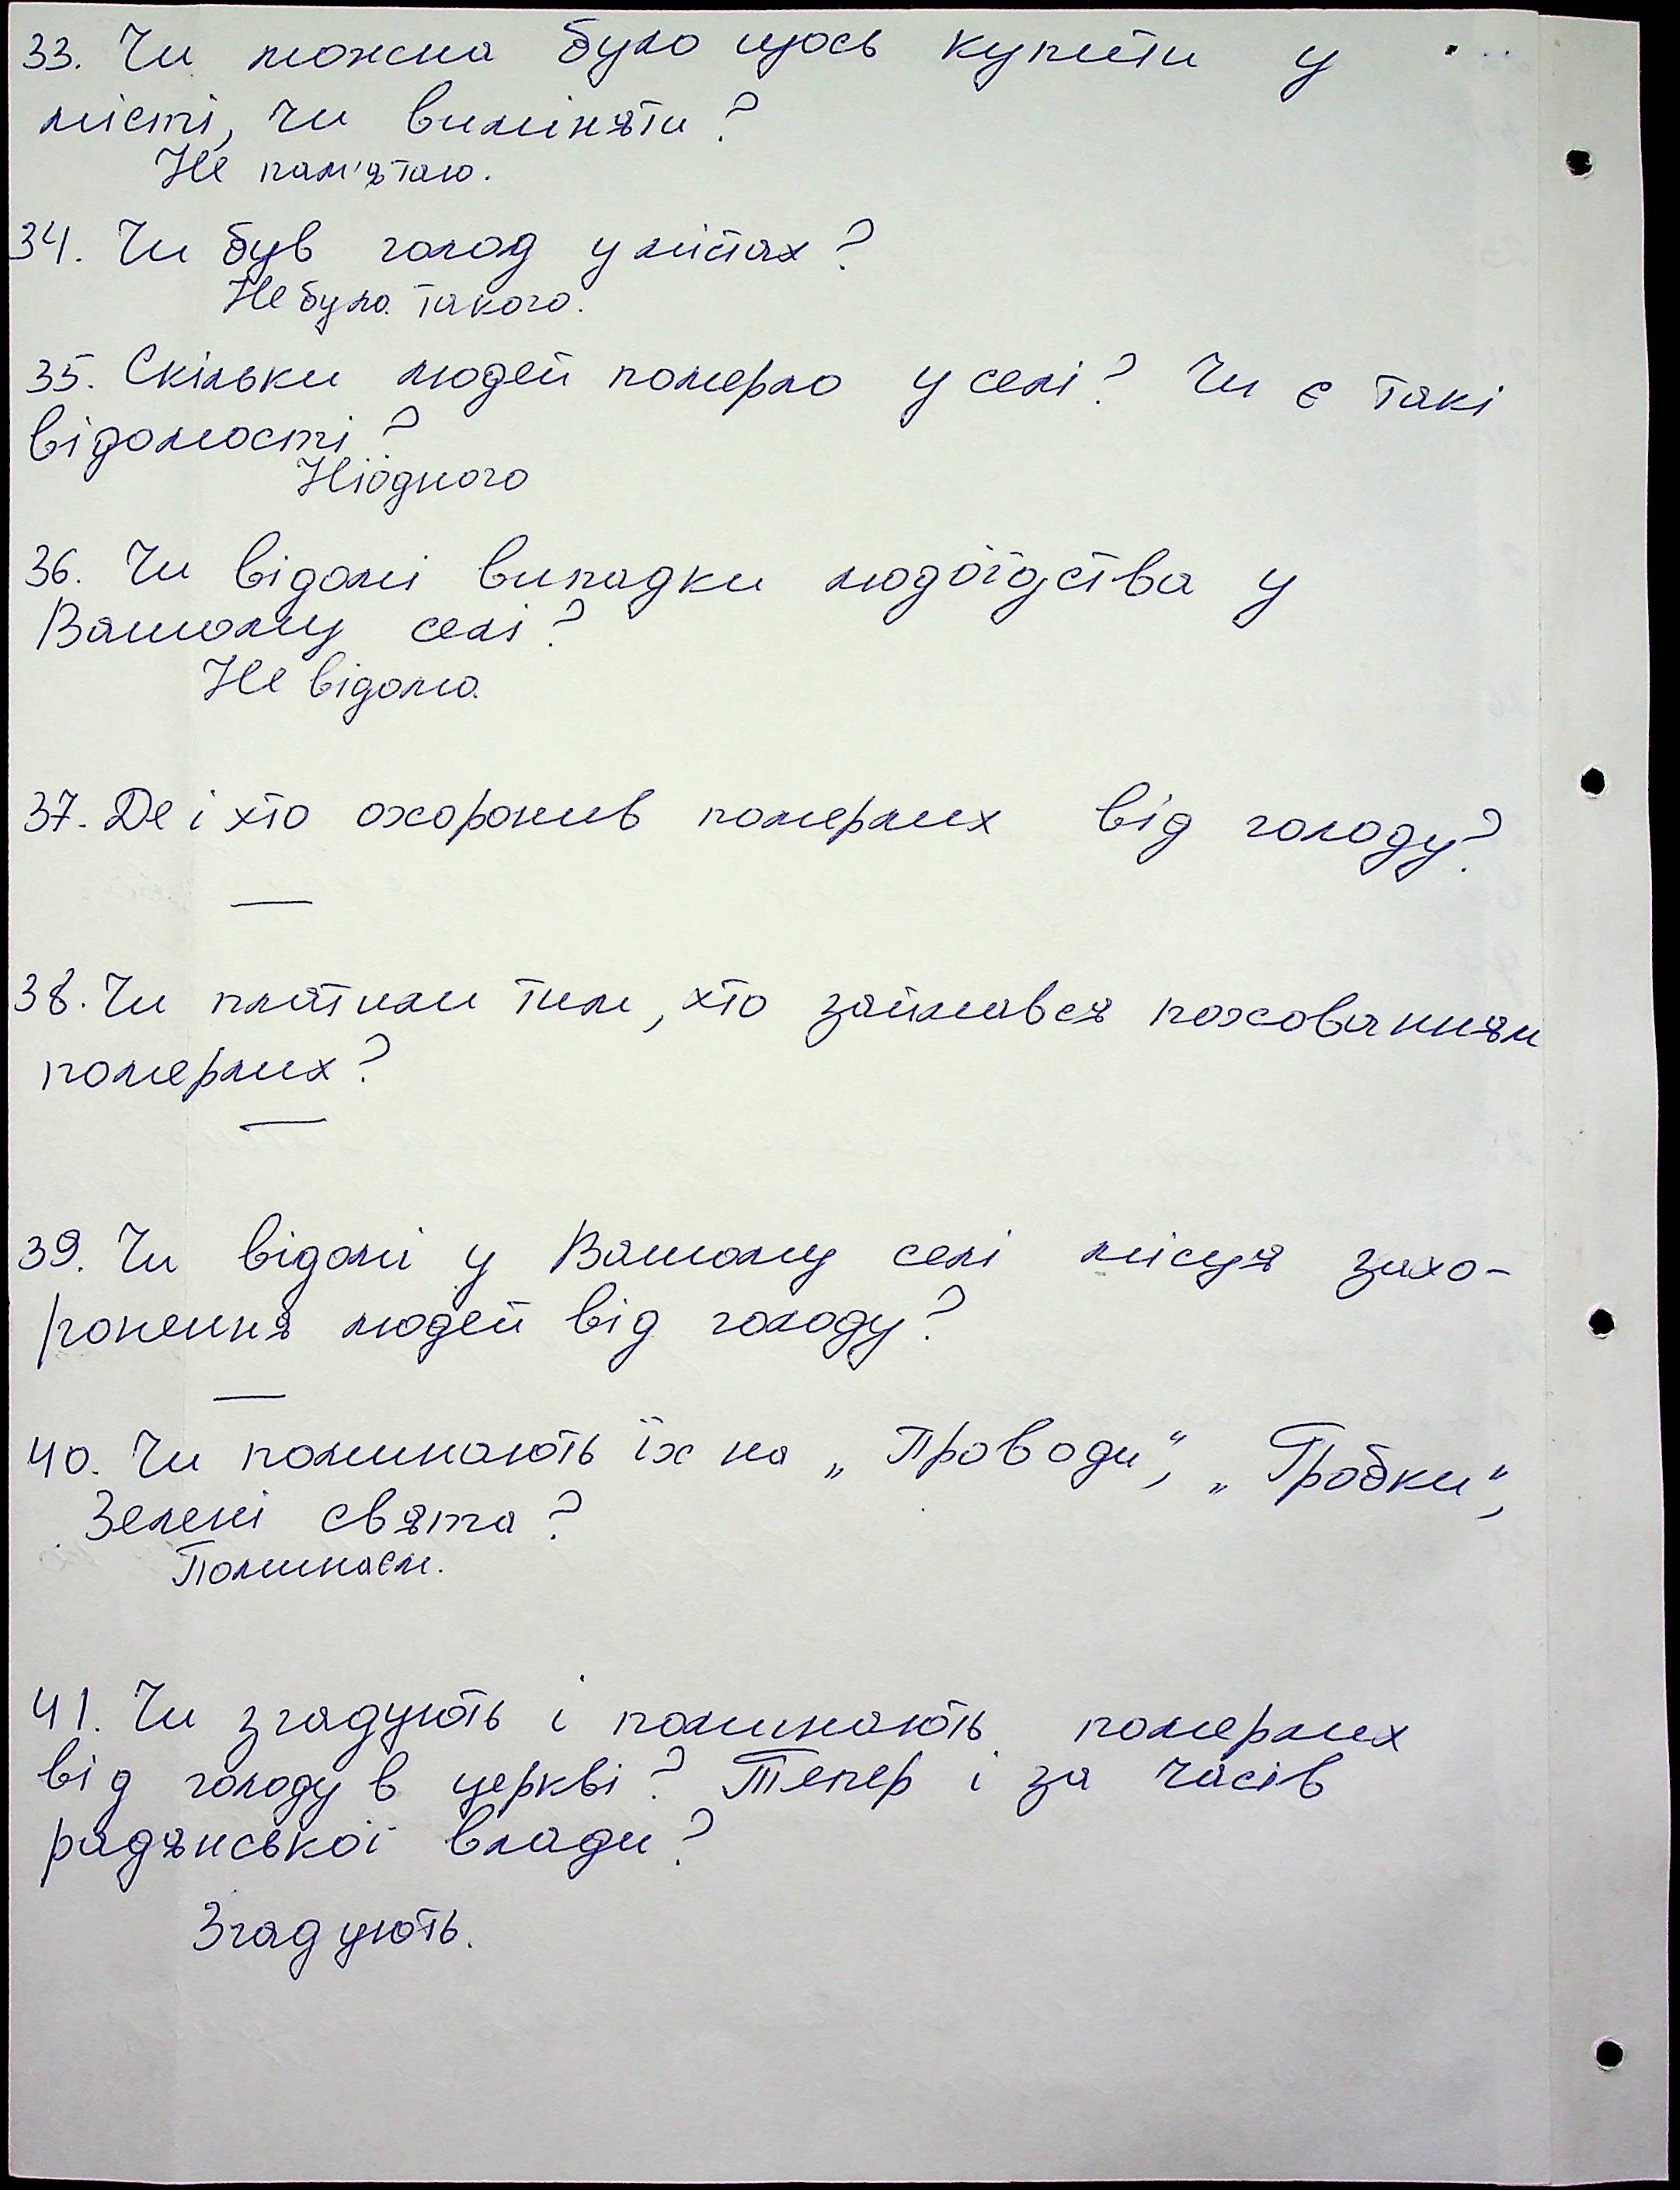 33. Чи можна було щось купити у
місті, чи виміняти?
Не пам'ятаю.
34. Чи був голод у містах?
Не було такого.
35. Скільки людей померло у селі? Чи є такі
відомості?
Ніодного
36. Чи відомі випадки людоїдства у
Вашому селі?
Не відомо.
37. Де і хто охоронив померлих від голоду?
—
38. Чи платили тим, хто займався похованням
померлих?
—
39. Чи відомі у Вашому селі місця захо-
ронення людей від голоду?
—
40. Чи поминають їх на „Проводи“, „Гробки“,
Зелені свята?
Поминаєм.
41. Чи згадують і поминають померлих
від голоду в церкві? Тепер і за часів
радянської влади?
Згадують.